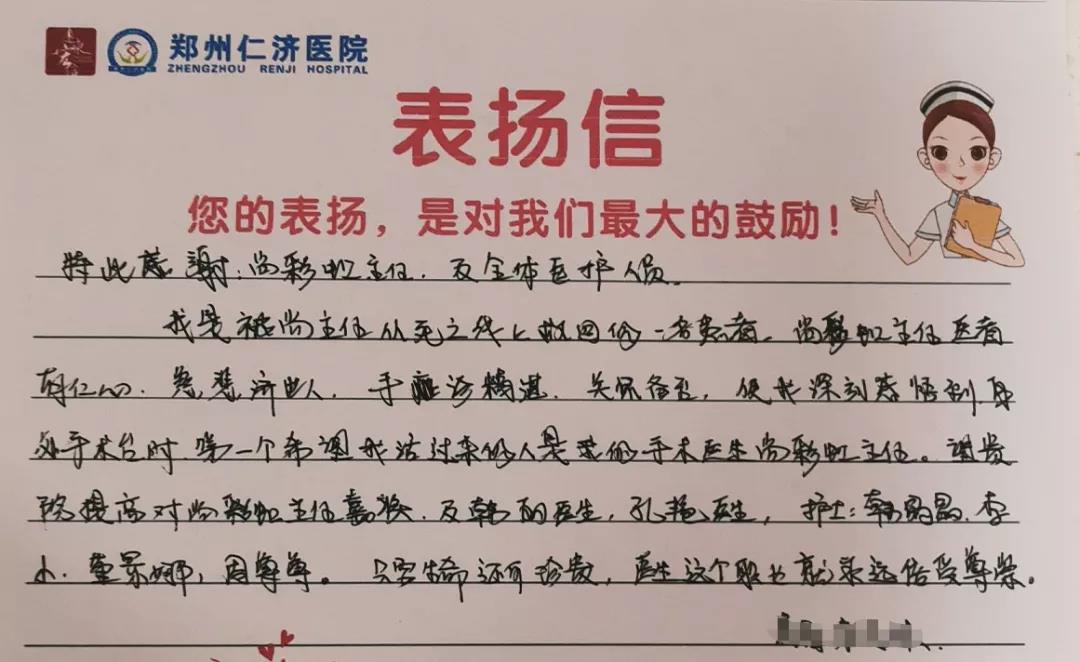 郑州仁济医院
ZHENGZHOU RENJI HOSPITAL
表扬信
您的表扬，是对我们最大的鼓励！
特此感谢：尚彩虹主任．及全体医护人员。
我是被尚主任从死亡线上救回的一名患者，尚彩虹主任医者
有仁心．慈悲济世人．手术精湛．关怀备至，使我深刻感悟到身
处手术台时．第一个希望我活过来的人是我的手术医生尚彩虹主任。望贵
院提高对尚彩虹主任嘉奖．及韩丽医生，孔艳医生，护士：韩晶晶．李
小．董景娜，周尊尊。只要生命还可珍贵，医生这个职业就永远倍受尊荣。